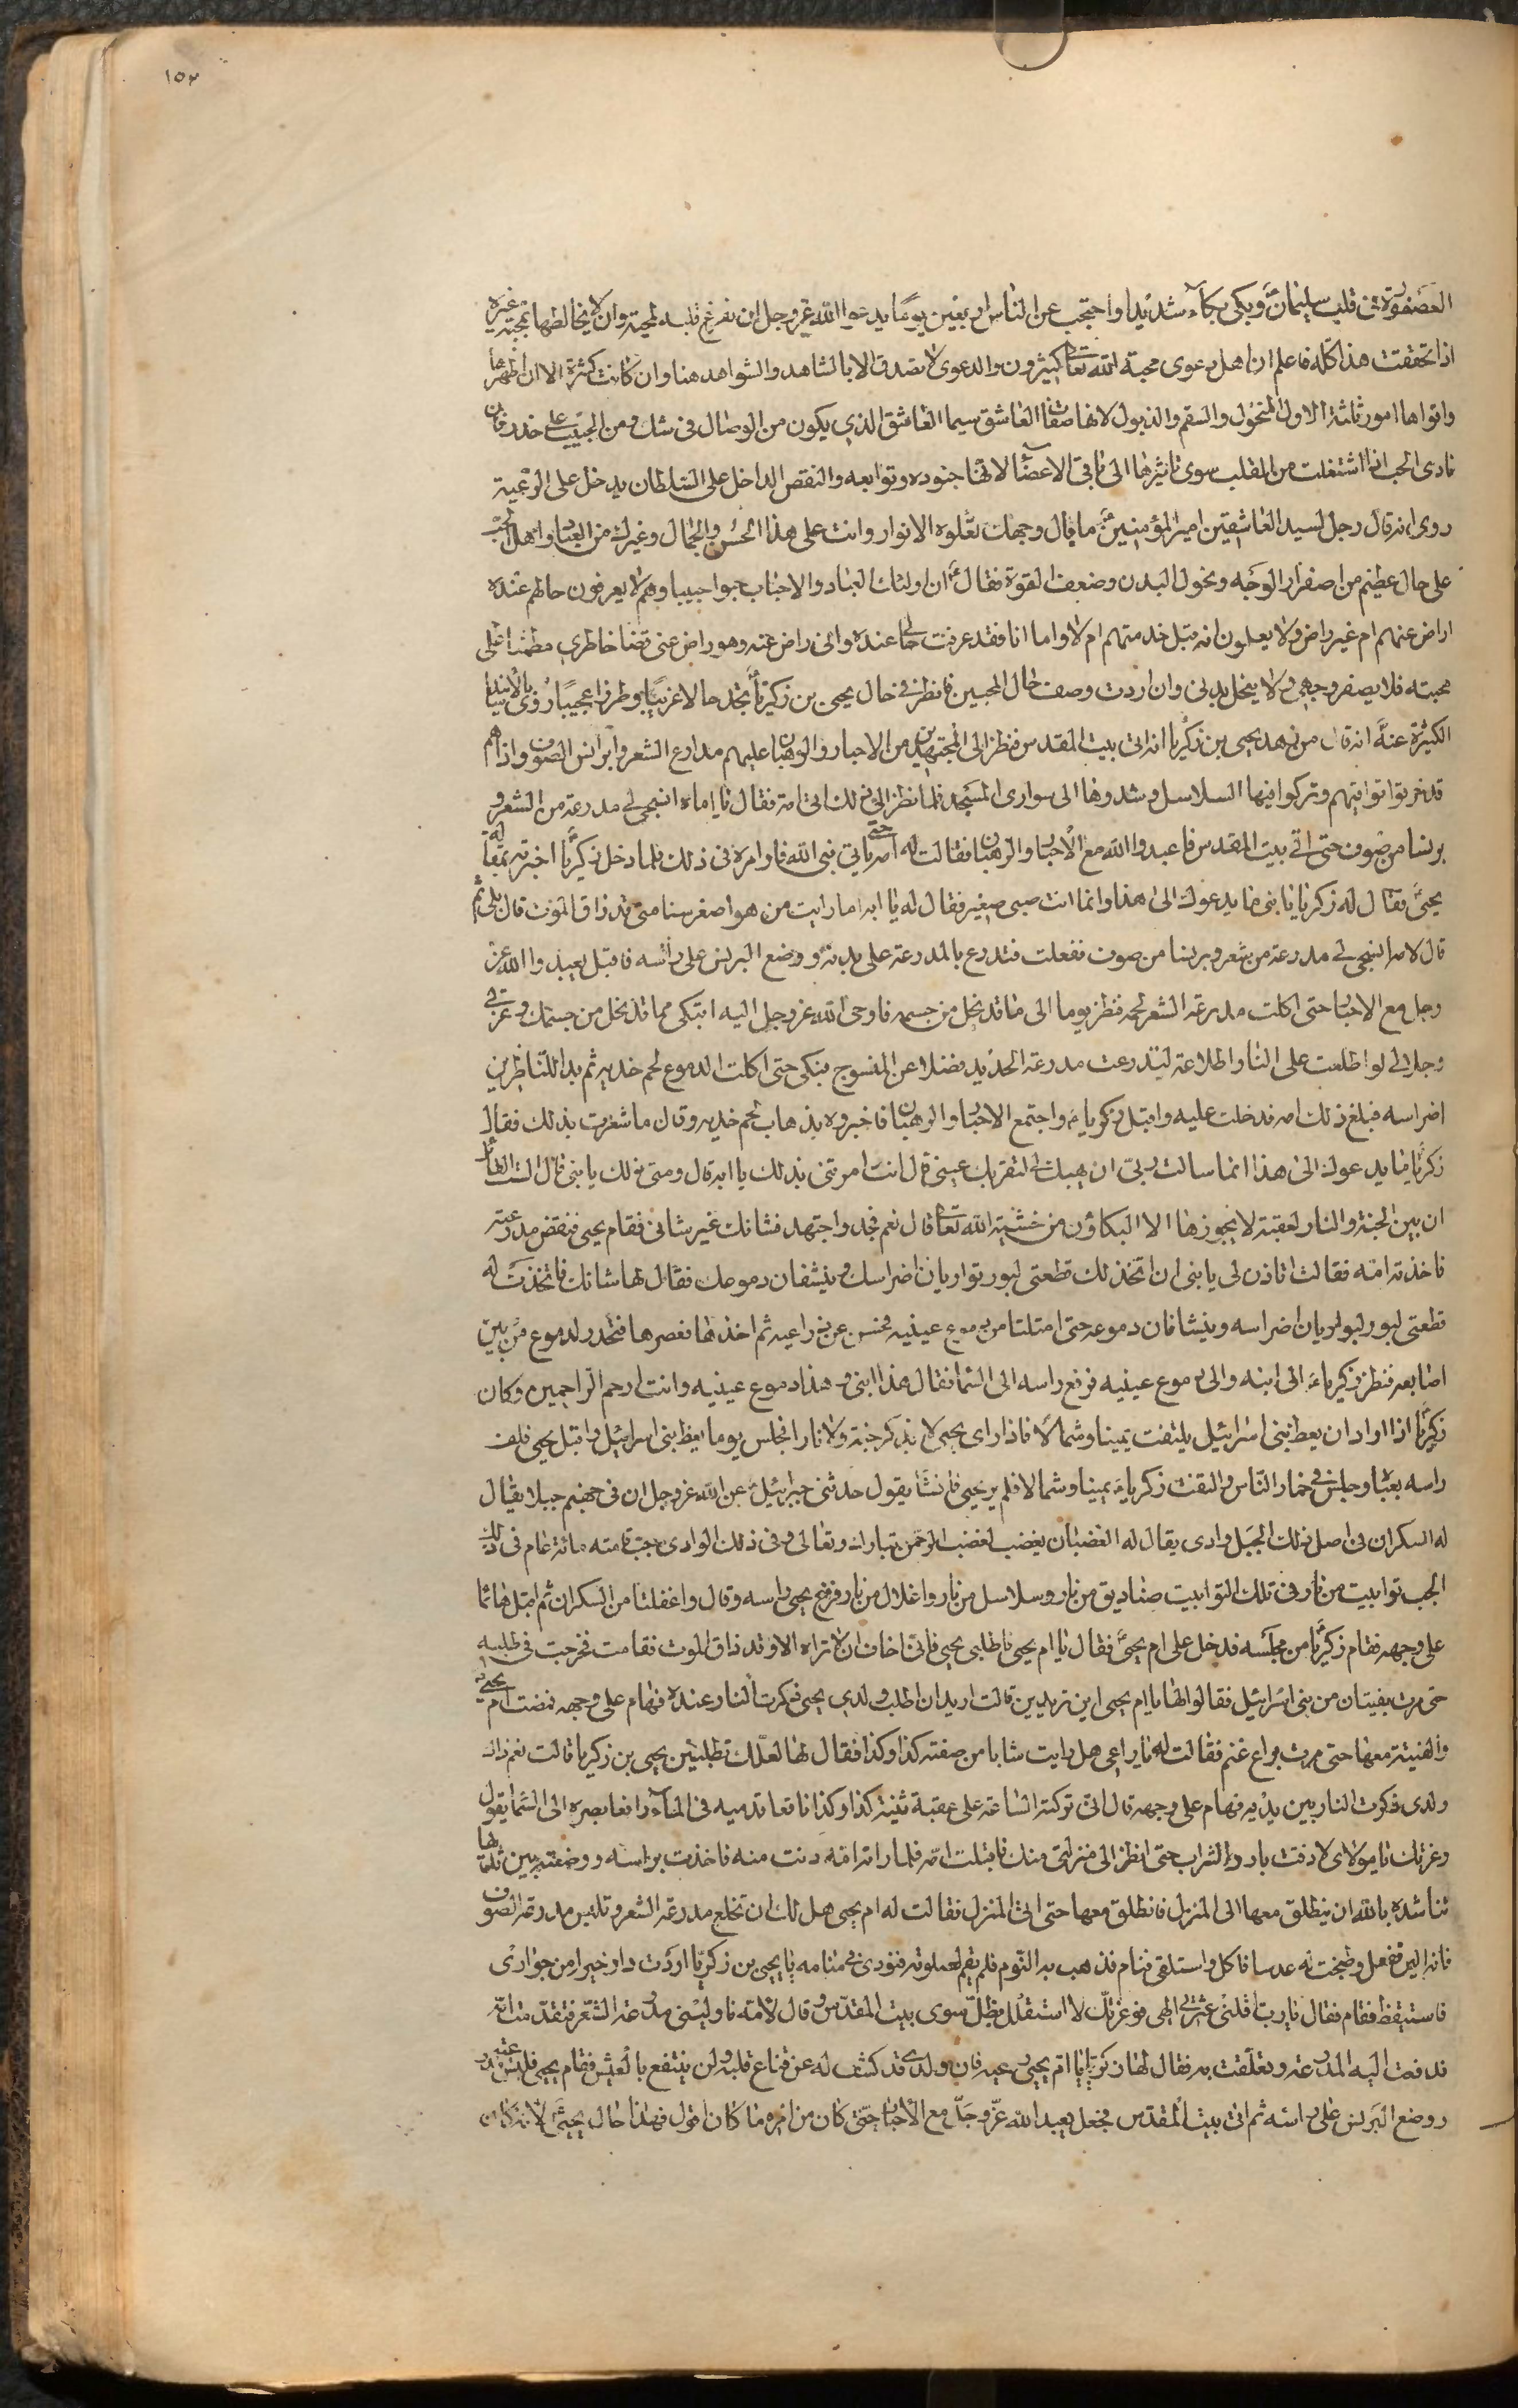 ١٥٢
العصفورة في قلب سليمان ع وبكى بكاء شديدا واحتجب عن الناس اربعين يوما يدعوا الله عز وجل ان يفرغ قلبه لمحبته وان لا يخالطها بمحبة غيره
اذا تحققت هذا كله فاعلم ان اهل دعوى محبة الله تعالى كثيرون والدعوى لا تصدق الا بالشاهد والشواهد هنا وان كانت كثيرة الا ان اظهرها
واقواها امور ثلثة الاول النحول والسقم والذبول لانها صفات العاشق سيما العاشق الذي يكون من الوصال في شك ومن الحبيب على حذر فان
نادى الحب اذا اشتغلت من القلب سوى تاثيرها الى باقي الاعضاء لانها جنوده وتوابعه والنقص الداخل على السلطان يدخل على الرعية
روى انه قال رجل لسيد العاشقين امير المؤمنين ع ما بال وجهك تعلوه الانوار وانت على هذا الحسن والجمال وغيرك من العباد واهل الحب
على حال عظيم من اصفرار الوجه ونحول البدن وضعف القوة فقال ع ان اولئك العباد والاحباب احبوا حبيبا وهم لا يعرفون حالهم عنده
اراض عنهم ام غير راض ولا يعلمون انه قبل خدمتهم ام لا واما انا فقد عرفت حالي عنده وانى راض عنه وهو راض عني فصار خاطري مطمئنا على
محبته فلا يصفر وجهي ولا ينحل بدني وان اردت وصف حال المحبين فانظر في حال يحيى بن زكريا ع تجد حالا غريبا وطرزا عجيبا روى بالاسانيد
الكثيرة عنه ع انه قال من زهد يحيى بن زكريا انه اتى بيت المقدس فنظر الى المجتهدين من الاحبار والرهبان عليهم مدارع الشعر وبرانس الصوف واذا هم
قد خرقوا تراقيهم وتركوا فيها السلاسل وشدوها الى سوارى المسجد فلما نظر الى ذلك اتى امه فقال يا اماه انسجي لي مدرعة من الشعر و
برنسا من صوف حتى اتي بيت المقدس فاعبدوا الله مع الاحبار والرهبان فقالت له امه حتى ياتي نبي الله فاوامره في ذلك فلما دخل زكريا ع اخبرته بمقالة
يحيى ع فقال له زكريا يا بني ما يدعوك الى هذا وانما انت صبي صغير فقال له يا ابه اما رايت من هو اصغر سنا مني قد ذاق الموت قال بلى ثم
قال لامه انسجي له مدرعة من شعر وبرنسا من صوف ففعلت فتدرع بالمدرعة على بدنه ووضع البرنس على راسه فاقبل يعبدوا الله عز
وجل مع الاحبار حتى اكلت مدرعة الشعر لحمه فنظر يوما الى ما قد نحل من جسمه فاوحى الله عز وجل اليه اتبكي مما قد نحل من جسمك وعزتي
وجلالي لو اطلعت على النار اطلاعة لتدرعت مدرعة الحديد فضلا عن المنسوج فبكى حتى اكلت الدموع لحم خديه ثم بدا للناظرين
اضراسه فبلغ ذلك امه فدخلت عليه واقبل زكريا ع واجتمع الاحبار والرهبان فاخبروه بذهاب لحم خديه وقال ما شعرت بذلك فقال
زكريا ع ما يدعوك الى هذا انما سالت ربي ان يهبك لي لتقر بك عيني قال انت امرتني بذلك يا ابه قال ومتى ذلك يا بني قال الست القائل
ان بين الجنة والنار لعقبة لا يجوزها الا البكاؤن من خشية الله تعالى قال نعم فجد واجتهد فشانك غير شاني فقام يحيى فنفض مدرعته
فاخذته امه فقالت اتاذن لي يا بني ان اتخذ لك قطعتي لبود تواريان اضراسك وينشفان دموعك فقال لها شانك فاتخذت له
قطعتي لبود لبواريان اضراسه وينشافان دموعه حتى امتلتا من دموع عينيه فحسر عن ذراعيه ثم اخذهما فعصرها فتحدر لدموع من بين
اصابعه فنظر زكريا ع الى ابنه والى دموع عينيه فرفع راسه الى السما فقال هذا ابني وهذا دموع عينيه وانت ارحم الراحمين وكان
زكريا ع اذا اراد ان يعظ بني اسرائيل يلتفت يمينا وشمالا فاذا راى يحيى لا يذكر جنة ولا نارا فجلس يوما يعظ بني اسرائيل واقبل يحيى فلف
راسه بعباء وجلس في خمار الناس والتفت زكريا ع يمينا وشمالا فلم ير يحيى فانشا يقول حدثني جبرائيل ع عن الله عز وجل ان في جهنم جبلا يقال
له السكران في اصل ذلك الجبل وادى يقال له الغضبان يغضب لغضب الرحمن تبارك وتعالى وفي ذلك الوادى جب قامته مائة عام في ذلك
الجب توابيت من نار وفي تلك التوابيت صناديق من نار وسلاسل من نار واغلال من نار فرفع يحيى راسه وقال واغفلتا من السكران ثم اقبل هائما
على وجهه فقام زكريا ع من مجلسه فدخل على ام يحيى ع فقال يا ام يحيى فاطلبي يحيى فاني اخاف ان لا تراه الا وقد ذاق الموت فقامت فخرجت في طلبه
حتى مرت بفتيان من بني اسرائيل فقالوا لها يا ام يحيى اين تريدين قالت اريد ان اطلب ولدي يحيى ذكرت النار عنده فهام على وجهه فمضت ام يحيى
والفتية معها حتى مرت براع غنم فقالت له يا راعي هل رايت شابا من صفته كذا وكذا فقال لها لعلك تطلبين يحيى بن زكريا قالت نعم ذاك
ولدي ذكرت النار بين يديه فهام على وجهه قال اني تركته الساعة على عقبة ثنية كذا وكذا ناقعا قدميه في الماء رافعا بصره الى السما يقول
وعزتك يا مولاي لا ذقت بارد الشراب حتى انظر الى منزلتي منك فاقبلت امه فلما راته امه دنت منه فاخذت براسه ووضعته بين ثدييها
تناشده بالله ان ينطلق معها الى المنزل فانطلق معها حتى اتى المنزل فقالت له ام يحيى هل لك ان تخلع مدرعة الشعر وتلبس مدرعة الصوف
فانه الين ففعل وطبخت له عدسا فاكل واستلقى فنام فذهب به النوم فلم يقم لصلوته فنودى في منامه يا يحيى بن زكريا اردت دار خيرا من جوارى
فاستيقظ فقام فقال يا رب اقلني عثرتي الهي فوعزتك لا استظل بظل سوى بيت المقدس وقال لامه ناوليني مدرعة الشعر فتقدمت امه
فدفعت اليه المدرعة وتعلقت به فقال لها زكريا يا ام يحيى دعيه فان ولدي قد كشف له عن قناع قلبه ولن ينتفع بالعيش فقام يحيى فلبس مدرعته
ووضع البرنس على راسه ثم اتى بيت المقدس فجعل يعبد الله عز وجل مع الاحبار حتى كان من امره ما كان اقول فهذا حال يحيى ع لانه كان